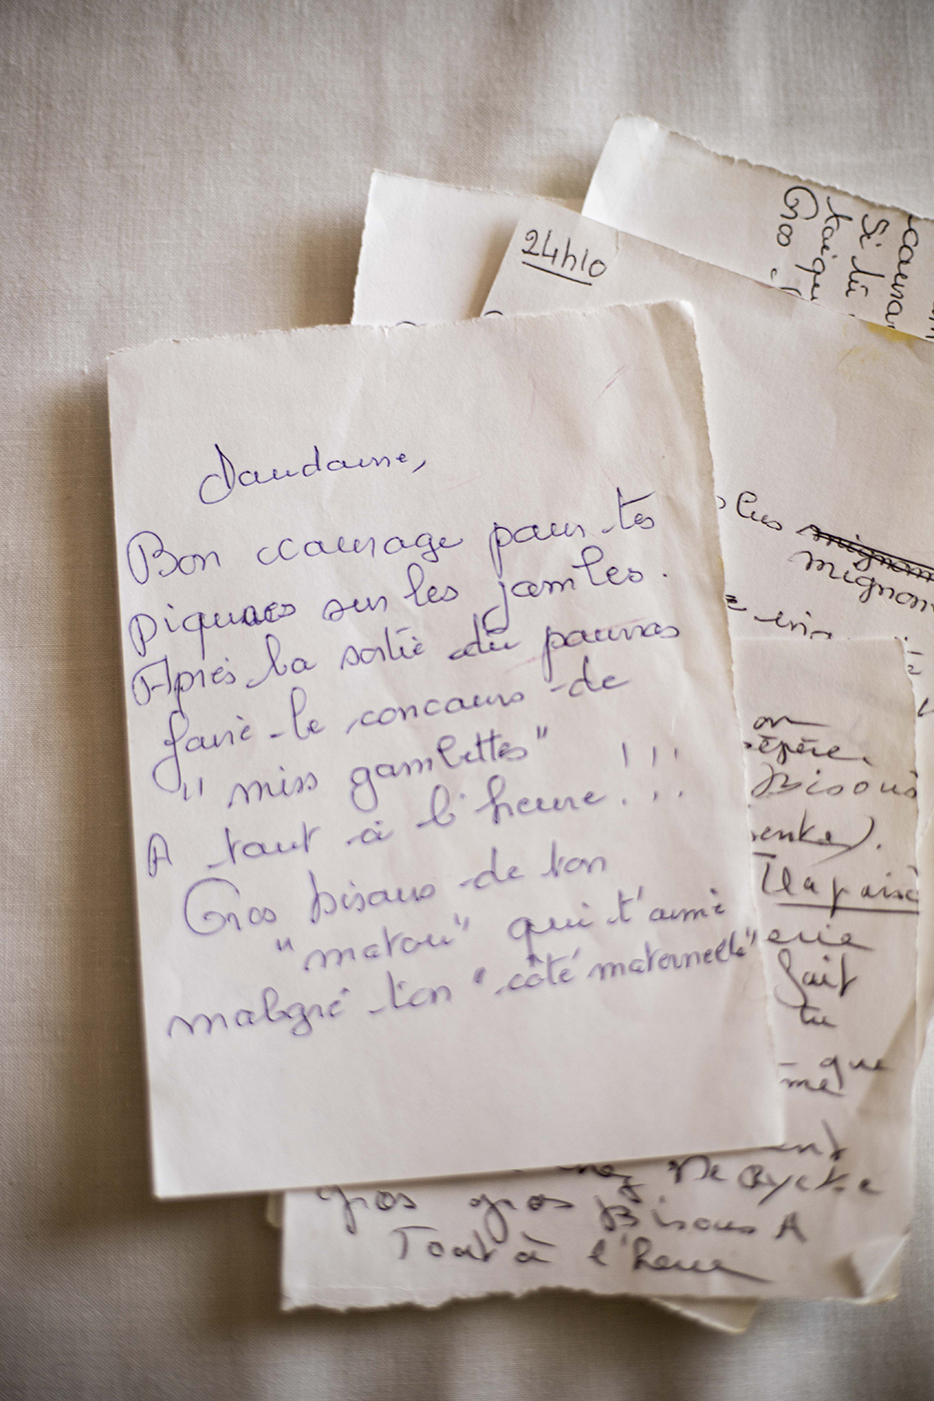 Daudaine,
Bon courage pour tes
piqures sur les jambes.
Après la sortie tu pourras
faire le concours de
"miss gambettes" !!!
A tout à l'heure
Gros bisous de ton
"matou" qui t'aime
malgré ton "côté maternelle"
24h10
Gros
Si tu
plus mignon
mignon
on
pépère.
Bisous
).
fait
tu
que
gros gros Bisous A
Tout à l'heure